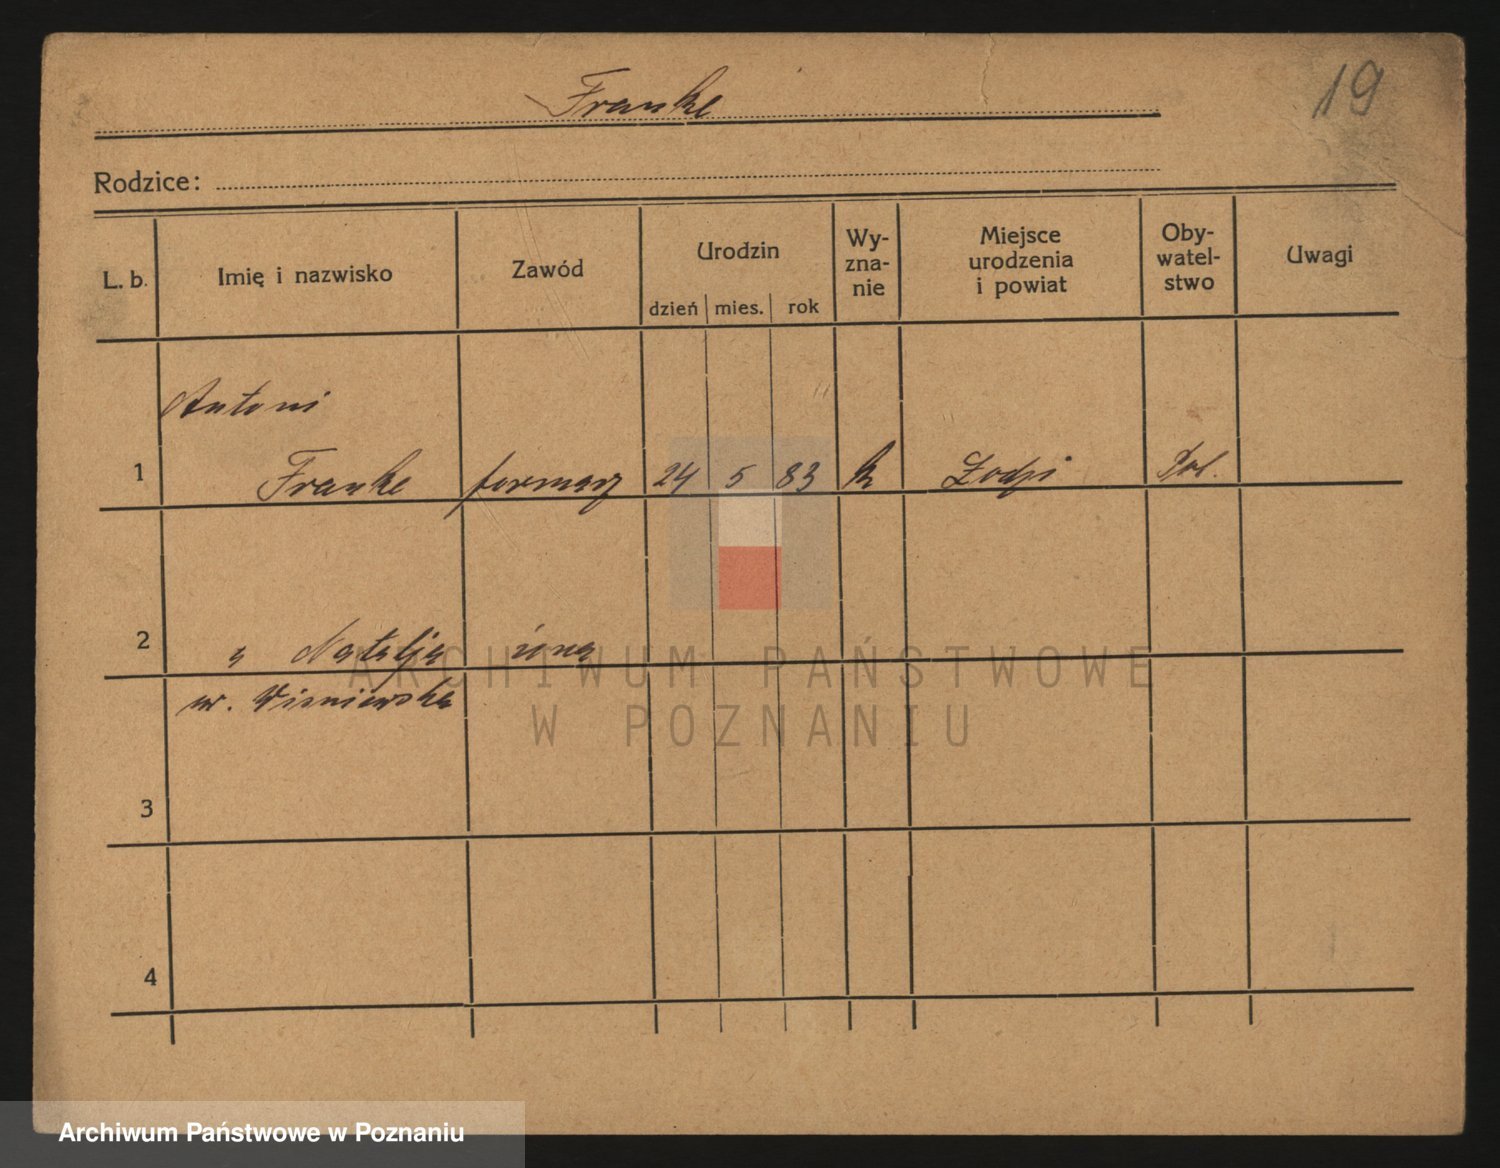 Franke
19
Rodzice:
L. b. Imię i nazwisko Zawód Urodzin dzień mies. rok Wy-zna-nie Miejsce urodzenia i powiat Oby-watel-stwo Uwagi
Antoni
1 Franke formierz 24 5 83 k Łodzi Pol.
2 " Natalja żona
ur. Wisniewska
3
4
ARCHIWUM PAŃSTWOWE
W POZNANIU
Archiwum Państwowe w Poznaniu